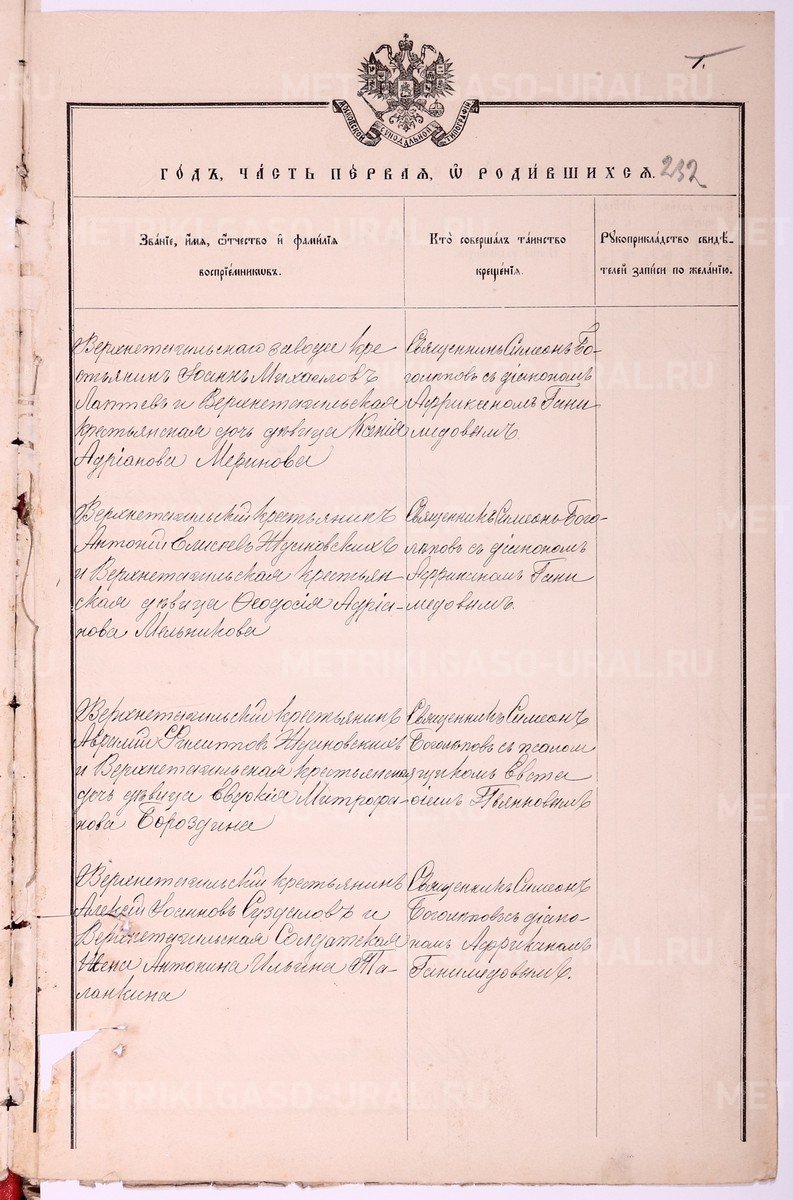 Духовной Сѵнодальной Типографіи
1.
ГОДЪ, ЧАСТЬ ПЕРВАЯ, Ѡ РОДИВШИХСЯ. 232
Званіе, имя, отчество и фамилія
воспріемниковъ.
Кто совершалъ таинство
крещенія.
Рукоприкладство свидѣ-
телей записи по желанію.
Верхнетагильскаго завода кре
стьянинъ Іоаннъ Михаиловъ
Лаптевъ и Верхнетагильская
крестьянская дочь дѣвица Ксенія
Адріанова Меринова
Священникъ Симеонъ Бо-
голѣповъ съ діакономъ
Африканомъ Гани
медовымъ.
Верхнетагильскій крестьянинъ
Антоній Елисеевъ Жуиновскихъ
и Верхнетагильская крестьян
ская дѣвица Ѳеодосія Адріа-
нова Мельникова
Священникъ Симеонъ Бого-
лѣповъ съ діакономъ
Африканомъ Гани
медовымъ.
Верхнетагильскій крестьянинъ
Филипповъ Жуиновскихъ
и Верхнетагильская крестьянская
дочь дѣвица Евдокія Митрофа-
нова Бороздина
Священникъ Симеонъ
Боголѣповъ съ псалом
щикомъ Евста
фіемъ
Верхнетагильскій крестьянинъ
Алексій Іоанновъ Суздаловъ и
Верхнетагильская Солдатская
жена Антонина Ильина Та-
ланкина
Священникъ Симеонъ
Боголѣповъ съ діако-
номъ Африканомъ
Ганимедовымъ.
METRIKI.GASO-URAL.RU